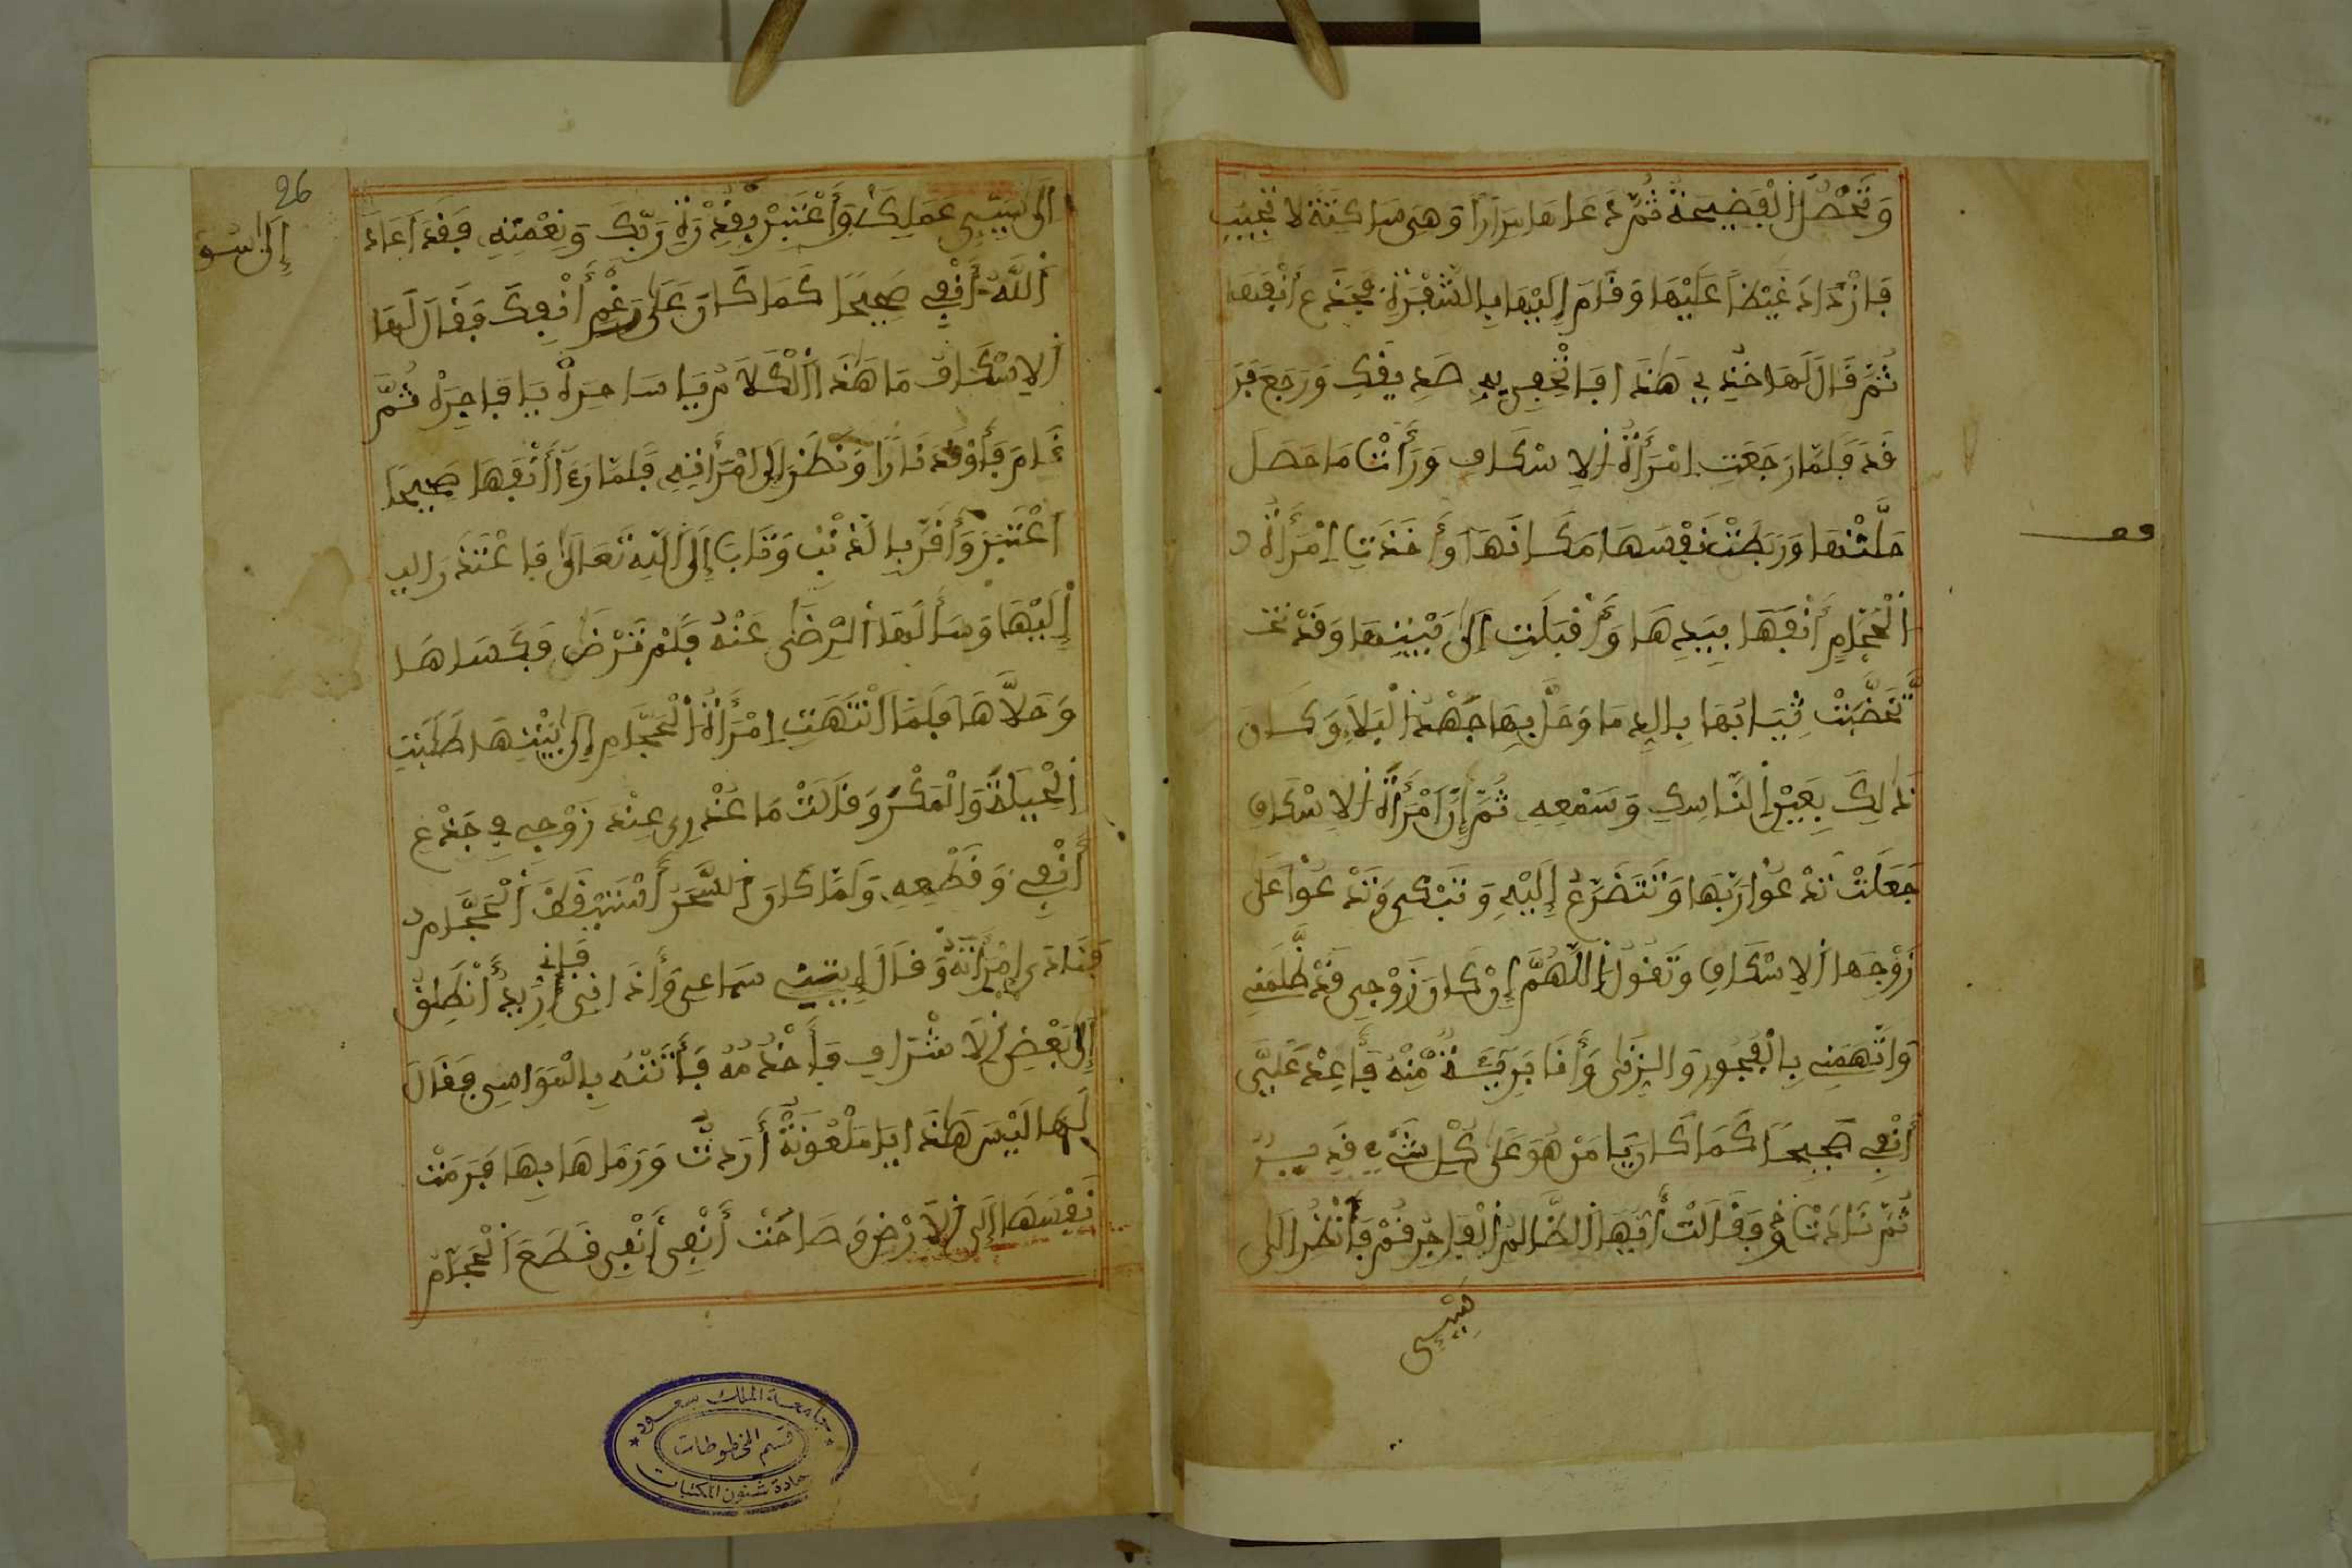 وَتَحْصُلُ الْفَضِيحَةُ ثُمَّ دَعَاهَا مِرَارًا وَهِيَ سَاكِتَةٌ لَا تُجِيبُ
فَازْدَادَ غَيْظًا عَلَيْهَا وَقَامَ إِلَيْهَا بِالشَّفْرَةِ فَجَدَعَ أَنْفَهَا
ثُمَّ قَالَ لَهَا خُذِي هَذَا فَاتْحِفِي بِهِ صَدِيقَكِ وَرَجَعَ فَرَ
قَدَ فَلَمَّا رَجَعَتِ امْرَأَةُ الْإِسْكَافِ وَرَأَتْ مَا حَصَلَ
حَلَّتْهَا وَرَبَطَتْ نَفْسَهَا مَكَانَهَا وَأَخَذَتِ امْرَأَةُ
الْحَجَّامِ أَنْفَهَا بِيَدِهَا وَأَقْبَلَتْ إِلَى بَيْتِهَا وَقَدْ تَخَـ
تَّخَضَّبَتْ ثِيَابُهَا بِالدِّمَا وَحَلَّ بِهَا جَهْدُ الْبَلَاءِ وَكَانَ
ذَلِكَ بِعَيْنِ النَّاسِكِ وَسَمْعِهِ ثُمَّ إِنَّ امْرَأَةَ الْإِسْكَافِ
جَعَلَتْ تَدْعُوا رَبَّهَا وَتَتَضَرَّعُ إِلَيْهِ وَتَبْكِي وَتَدْعُوا عَلَى
زَوْجِهَا الْإِسْكَافِ وَتَقُولُ اللَّهُمَّ إِنْ كَانَ زَوْجِي قَدْ ظَلَمَنِي
وَاتَّهَمَنِي بِالْفُجُورِ وَالزِّنَى وَأَنَا بَرِيَّةٌ مِنْهُ فَأَعِدْ عَلَيَّ
أَنْفِي صَحِيحًا كَمَا كَانَ يَا مَنْ هُوَ عَلَى كُلِّ شَيْءٍ قَدِيرٌ
ثُمَّ نَادَتْ وَقَالَتْ أَيُّهَا الظَّالِمُ الْفَاجِرُ قُمْ فَانْظُرْ إِلَى
إِلَى سَيِّئِ عَمَلِكَ وَأَعْتَبِرْ بِقُدْرَةِ رَبِّكَ وَنِعْمَتِهِ فَقَدْ أَعَادَ
اللَّهُ أَنْفِي صَحِيحًا كَمَا كَانَ عَلَى رَغْمِ أَنْفِكَ فَقَالَ لَهَا
الْإِسْكَافُ مَا هَذَا الْكَلَامُ يَا سَاحِرَةُ يَا فَاجِرَةُ ثُمَّ
قَامَ فَأَوْقَدَ نَارًا وَنَظَرَ إِلَى امْرَأَتِهِ فَلَمَّا رَءَا أَنْفَهَا صَحِيحًا
اعْتَبَرَ وَأَقَرَّ بِالذَّنْبِ وَتَابَ إِلَى اللَّهِ تَعَالَى فَاعْتَذَرَ الى
إِلَيْهَا وَسَأَلَهَا الرِّضَى عَنْهُ فَلَمْ تَرْضَ فَكَسَاهَا
وَحَلَّاهَا فَلَمَّا انْتَهَتِ امْرَأَةُ الْحَجَّامِ إِلَى بَيْتِهَا طَلَبَتِ
الْحِيلَةَ وَالْمَكْرَ وَقَالَتْ مَا عُذْرِي عِنْدَ زَوْجِي فِي جَدْعِ
أَنْفِي وَقَطْعِهِ وَلَمَّا كَانَ السَّحَرُ اسْتَيْقَظَ الْحَجَّامُ
فَنَادَى امْرَأَتَهُ وَقَالَ إِيتِينِي سماعى وَأَذَاتِي فَإِنِّي أُرِيدُ أَنْطَلِقُ
إِلَى بَعْضِ الْأَشْرَافِ فَأَخْدُمُهُ فَأَتَتْهُ بِالْمَوَاسِي فَقَالَ
لَهَا لَيْسَ هَذَا يَا مَلْعُونَةُ أَرَدْتُ وَرَمَاهَا بِهَا فَرَمَتْ
نَفْسَهَا إِلَى الْأَرْضِ وَصَاحَتْ أَنْفِي أَنْفِي قَطَعَ الْحَجَّامُ
26
جامعة الملك سعود
قسم المخطوطات
عمادة شئون المكتبات